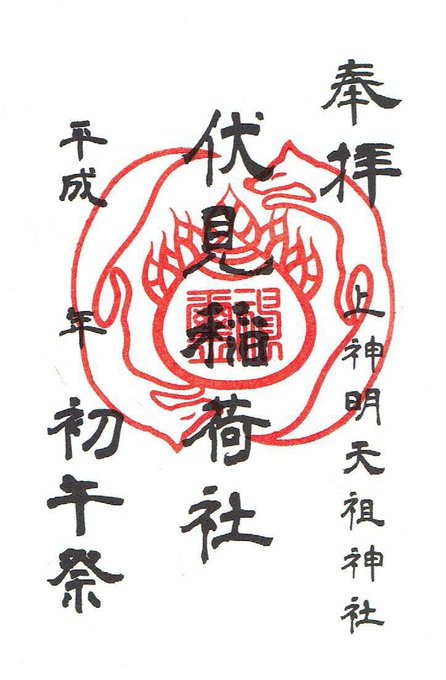 奉拝
上神明天祖神社
伏見稲荷社
平成 年
初午祭